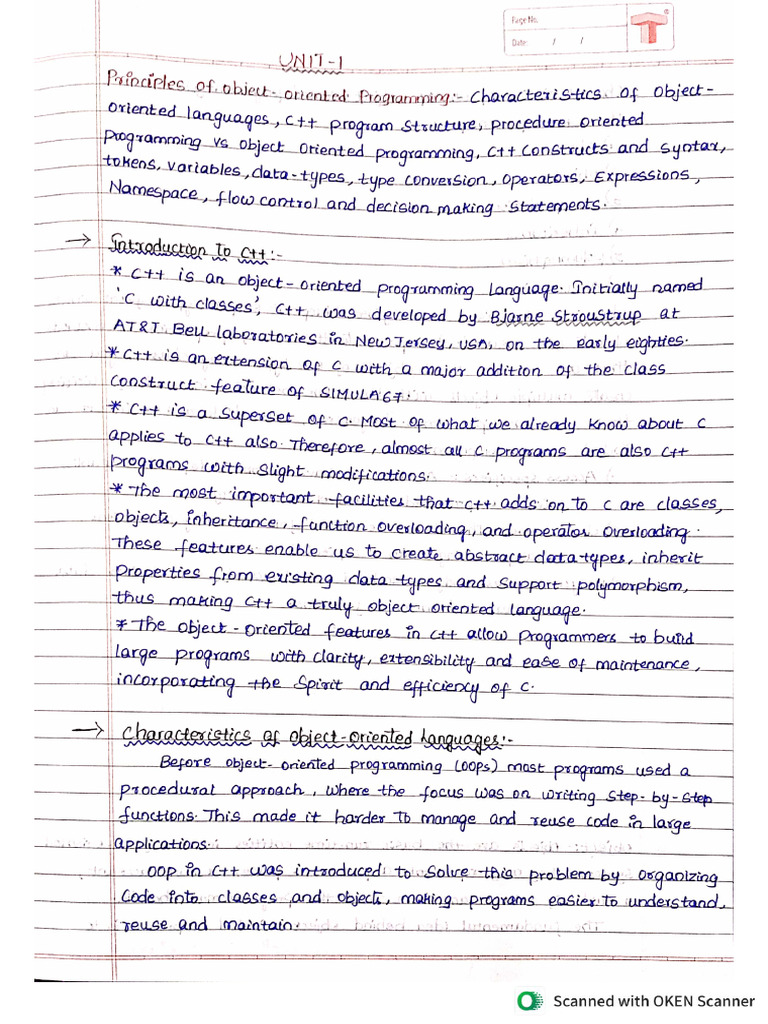 Page No.
Date: / /
T
UNIT-1
Principles of object-oriented Programming:- Characteristics of Object-
oriented languages, C++ program Structure, procedure oriented
Programming vs object oriented programming, C++ Constructs and Syntax,
tokens, variables, data-types, type conversion, operators, Expressions,
Namespace, flow control and decision making Statements.
→ Introduction to C++:-
* C++ is an object-oriented programming language. Initially named
'C with classes', C++ was developed by Bjarne Stroustrup at
AT&T Bell laboratories in New Jersey, USA, on the early eighties.
* C++ is an extension of C with a major addition of the class
construct feature of SIMULA67.
* C++ is a superset of C. Most of what we already know about C
applies to C++ also. Therefore, almost all C programs are also C++
programs with slight modifications.
* The most important facilities that C++ adds on to C are classes,
objects, inheritance, function overloading, and operator overloading.
These features enable us to create abstract data types, inherit
properties from existing data types and support polymorphism,
thus making C++ a truly object oriented language.
* The object-oriented features in C++ allow programmers to build
large programs with clarity, extensibility and ease of maintenance,
incorporating the spirit and efficiency of C.
→ Characteristics of Object-oriented Languages:-
Before object-oriented programming (OOPs) most programs used a
procedural approach, where the focus was on writing step-by-step
functions. This made it harder to manage and reuse code in large
applications.
OOP in C++ was introduced to solve this problem by organizing
code into classes and objects, making programs easier to understand,
reuse and maintain.
Scanned with OKEN Scanner